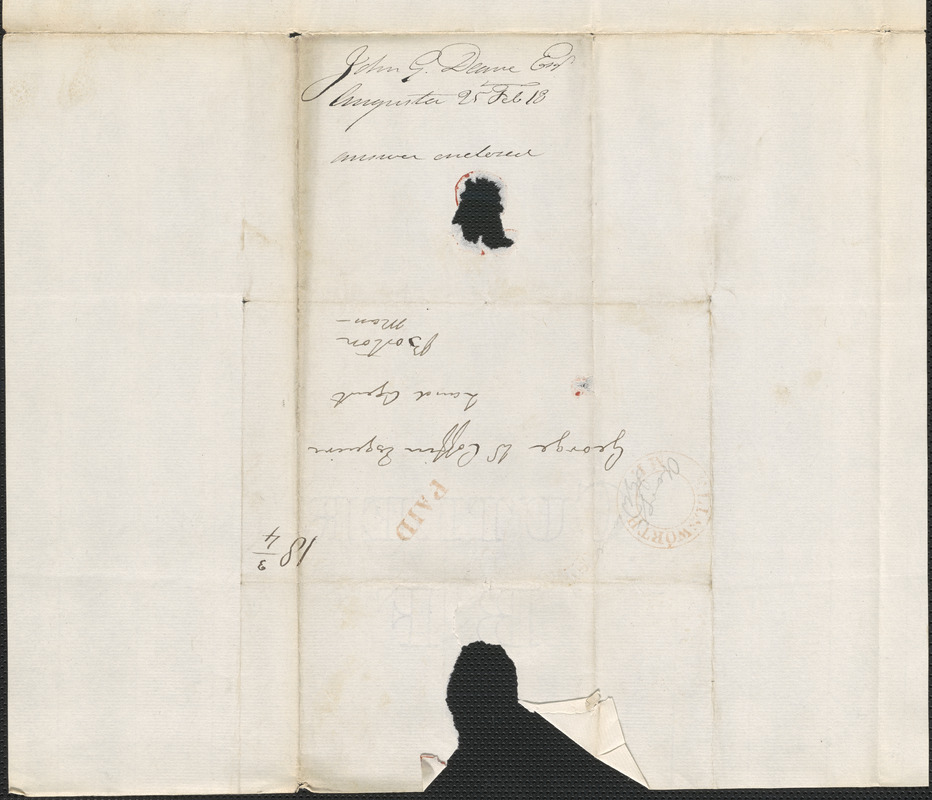 John G. Deane Esq
Augusta 25 Feb 18
answer enclosed
George W Coffin Esquire
Land Agent
Boston
Mass
PAID
18 3/4
ELLSWORTH